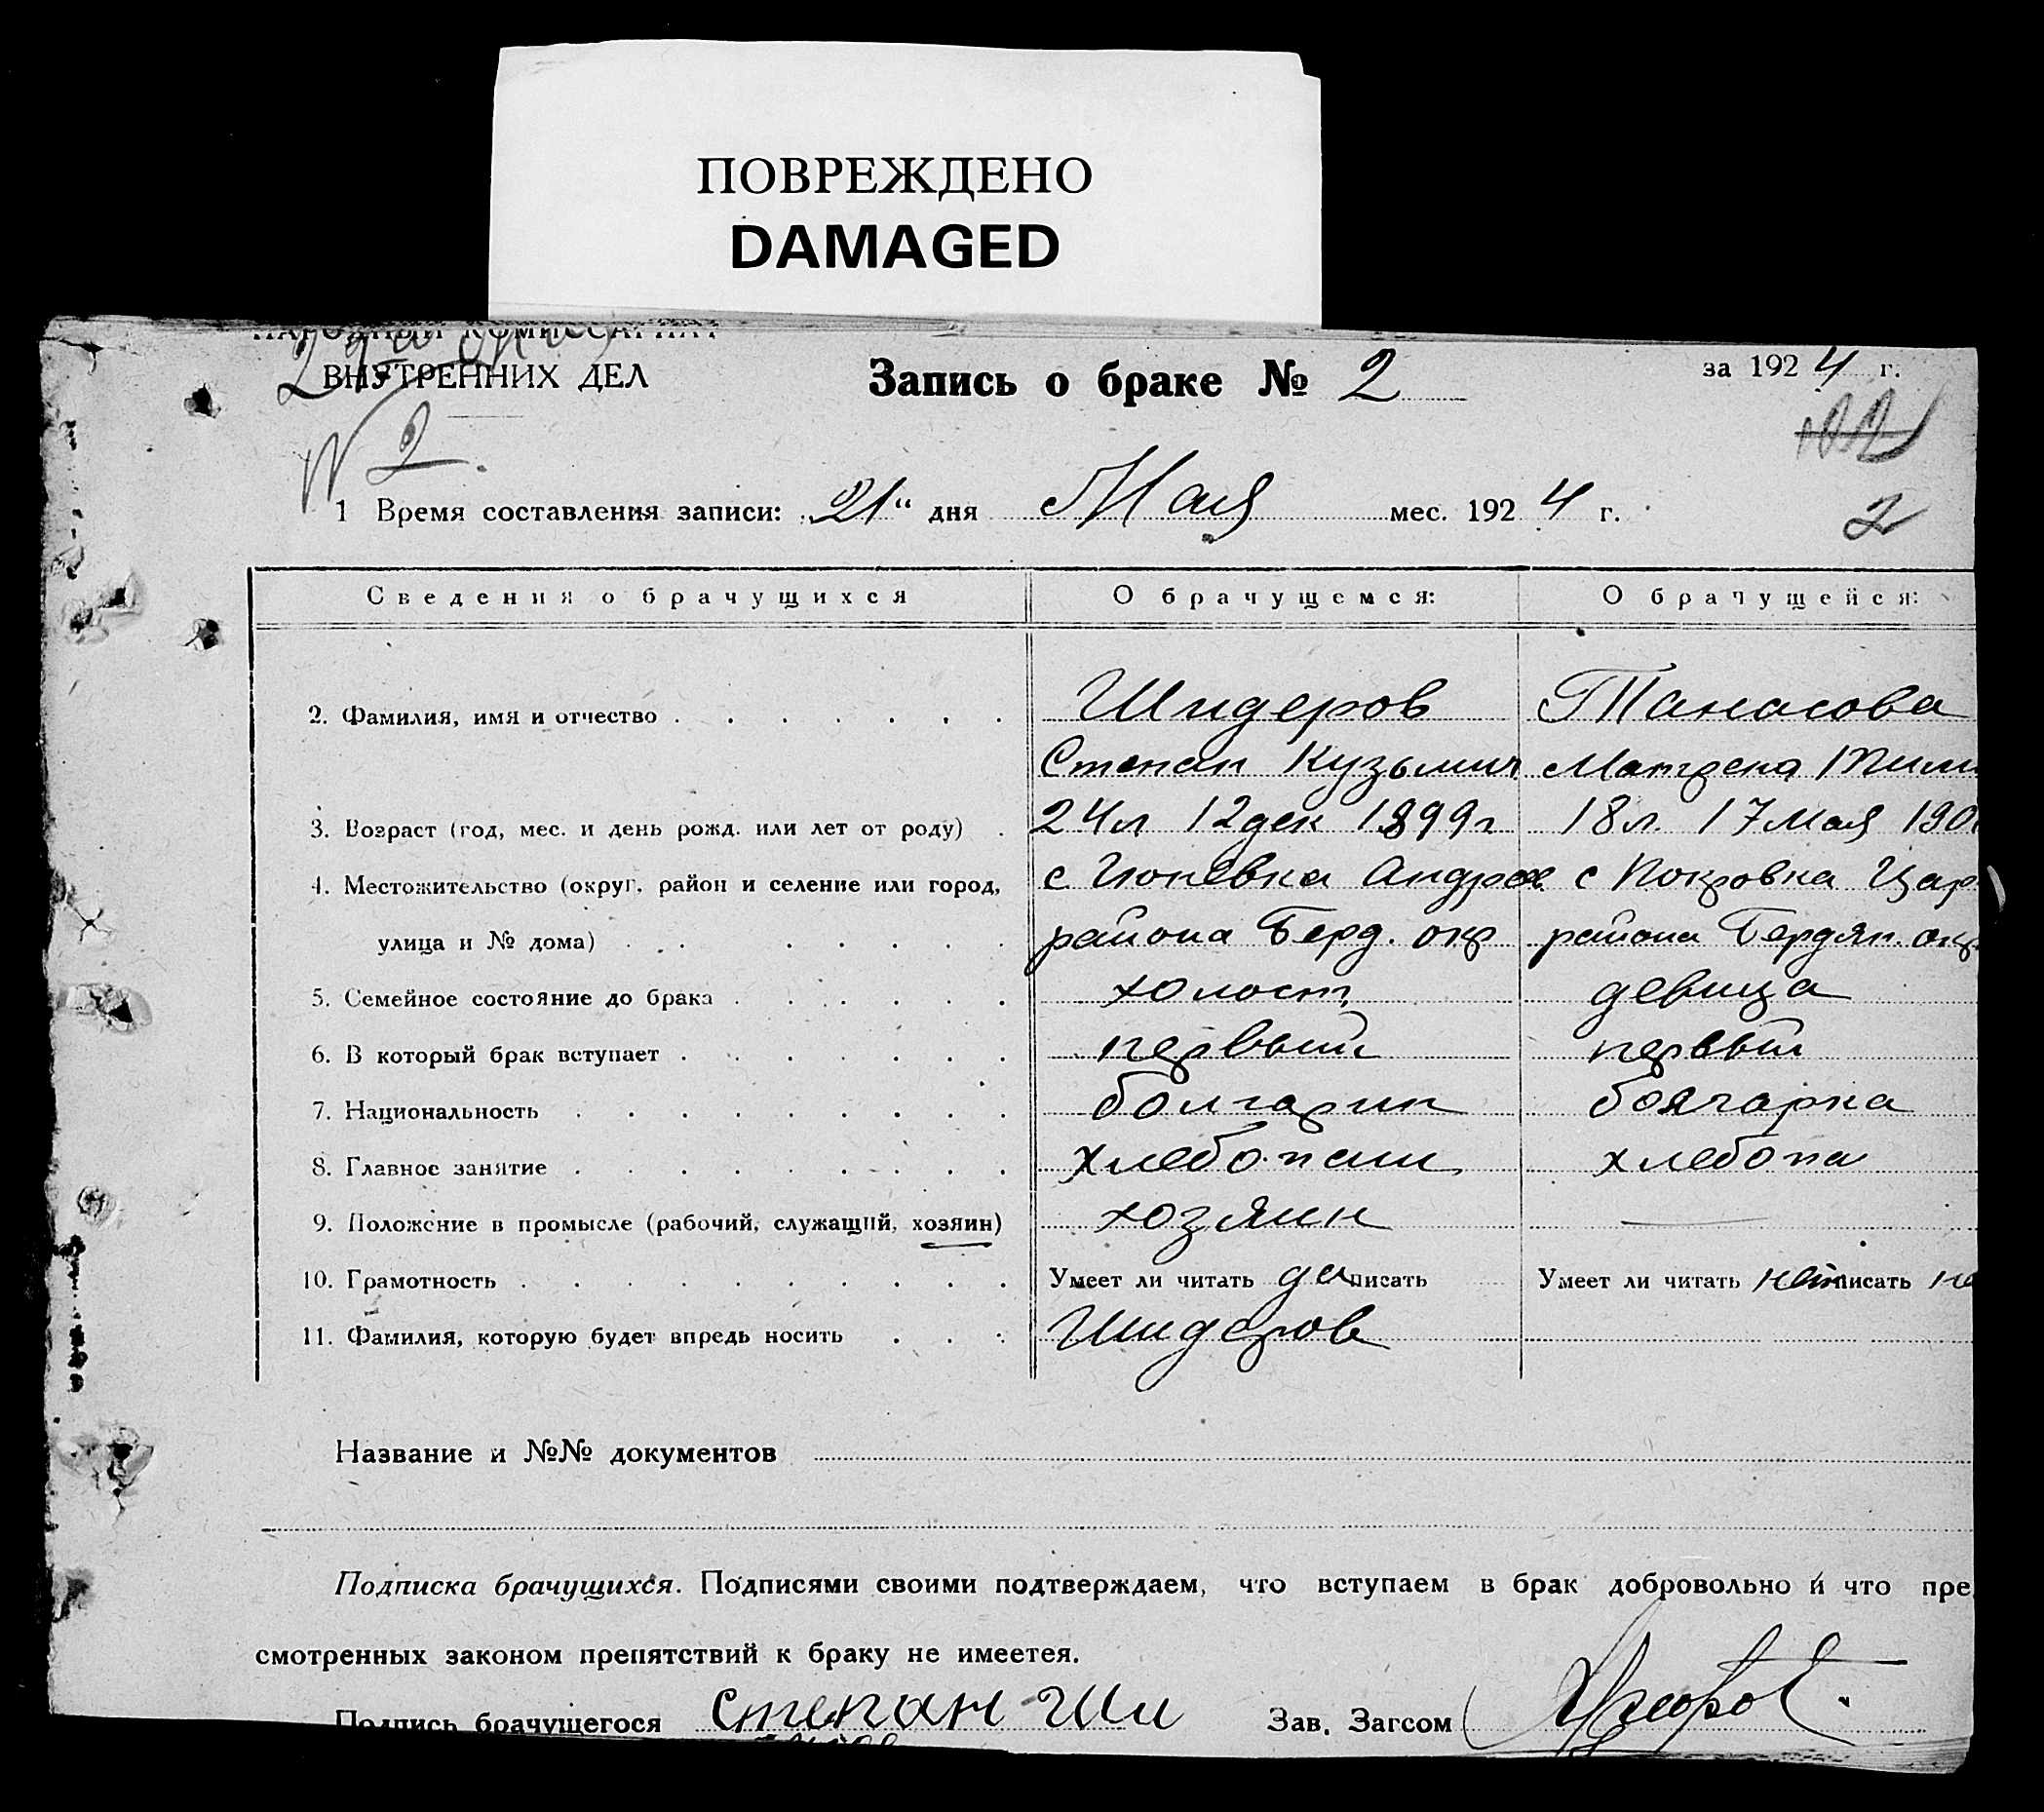 ПОВРЕЖДЕНО
DAMAGED
НАРОДНЫЙ КОМИССАРИАТ
ВНУТРЕННИХ ДЕЛ
Запись о браке № 2
за 1924 г.
N 2.
122
1 Время составления записи: 21" дня Мая мес. 1924 г.
2
Сведения о брачущихся О брачущемся: О брачущейся:
2. Фамилия, имя и отчество Шидеров Танасова
Степан Кузьмич Матрена
3. Возраст (год, мес. и день рожд. или лет от роду) 24 л 12 дек 1899 г 18 л. 17 Мая 190
4. Местожительство (округ, район и селение или город, с Гюневка Андров с Покровка Цар
улица и № дома) района Берд. окр района Бердян. окр
5. Семейное состояние до брака холост девица
6. В который брак вступает первый первый
7. Национальность болгарин болгарка
8. Главное занятие хлебопаш хлебопа
9. Положение в промысле (рабочий, служащий, хозяин) хозяин —
10. Грамотность Умеет ли читать да писать Умеет ли читать нет писать не
11. Фамилия, которую будет впредь носить Шидеров
Название и №№ документов
Подписка брачущихся. Подписями своими подтверждаем, что вступаем в брак добровольно и что пре
смотренных законом препятствий к браку не имеется.
Подпись брачущегося Степан Ши Зав. Загсом